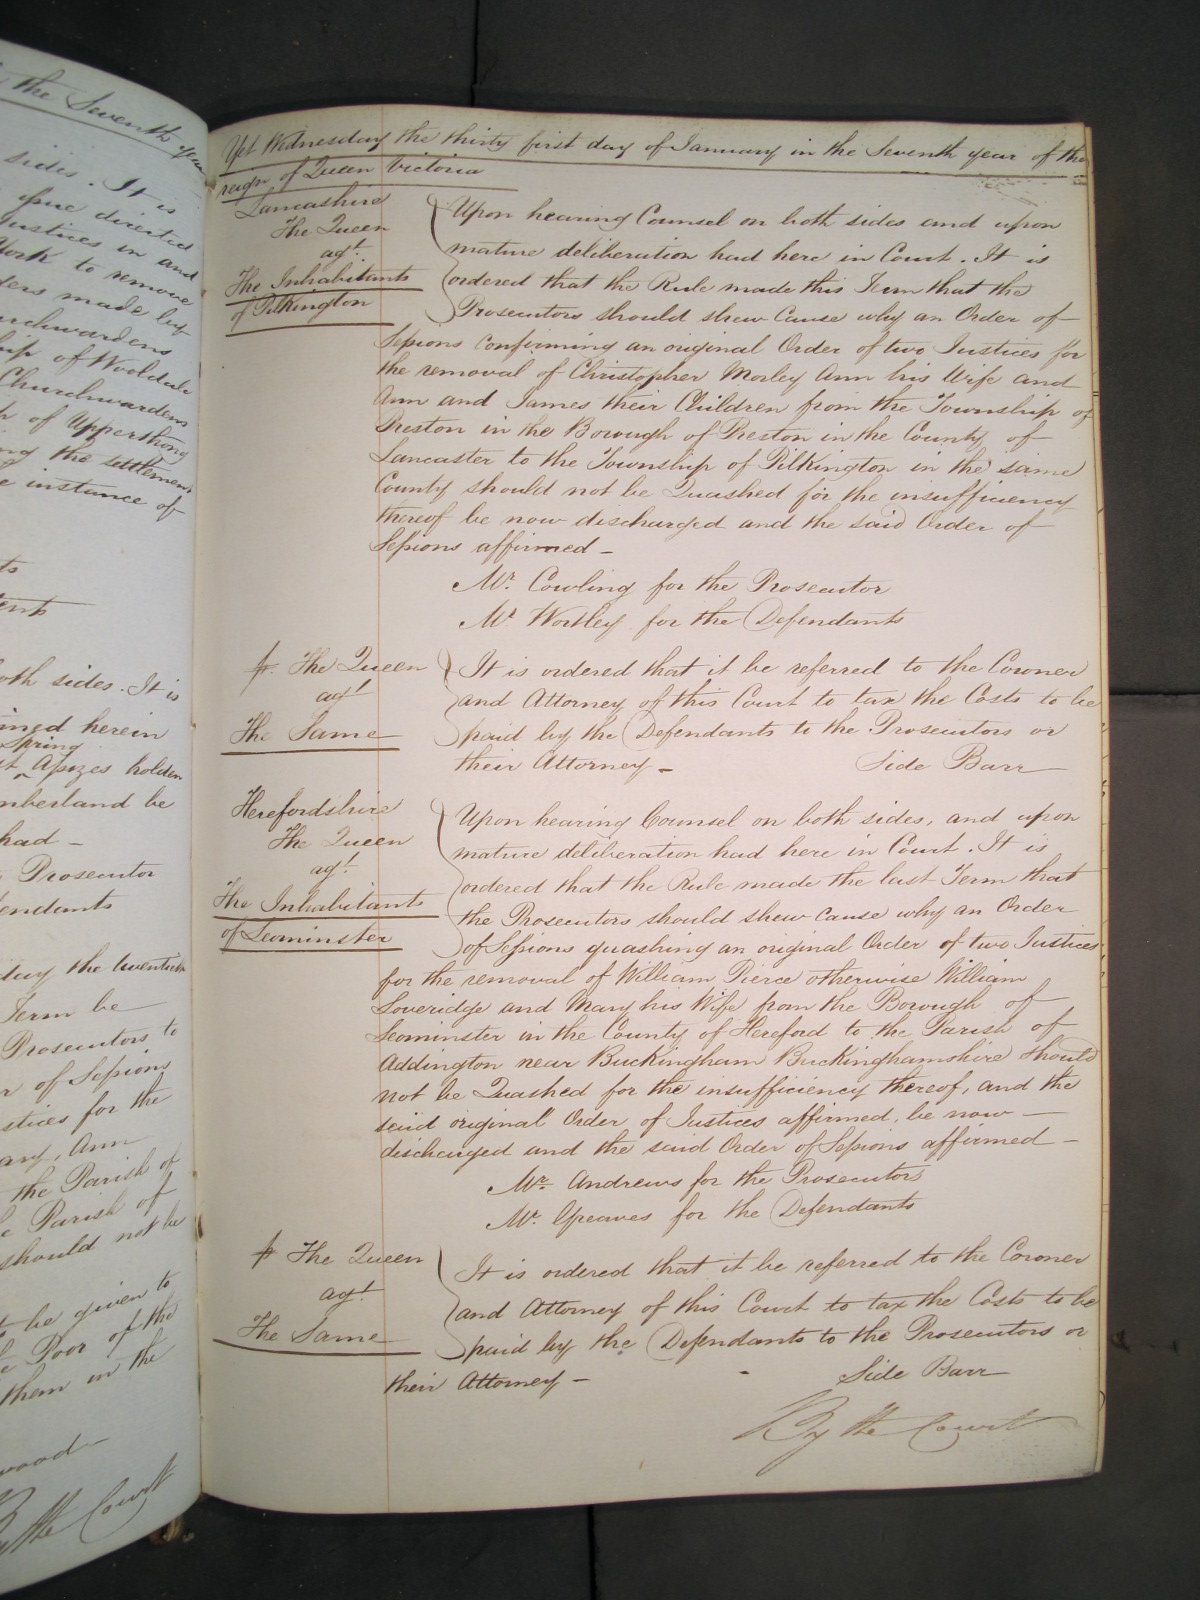 the Seventh year
sides. It is
issue directed
Justices in and
York to remove
made by
Churchwardens
of Wooldale
Churchwardens
of Upperthong
the settlement
instance of
both sides. It is
herein
Spring
Assizes holden
be
had -
Prosecutor
Defendants
the twentieth
Term be
Prosecutors to
of Sessions
Justices for the
Ann
the Parish of
Parish of
should not be
to be given to
Poor of the
them in the
By the Court
Yet Wednesday the thirty first day of January in the Seventh year of the
reign of Queen Victoria
Lancashire
The Queen
agt.
The Inhabitants
of Pilkington
Upon hearing Counsel on both sides and upon
mature deliberation had here in Court. It is
ordered that the Rule made this Term that the
Prosecutors should shew Cause why an Order of
Sessions confirming an original Order of two Justices for
the removal of Christopher Morley Ann his Wife and
Ann and James their Children from the Township of
Preston in the Borough of Preston in the County of
Lancaster to the Township of Pilkington in the same
County should not be Quashed for the insufficiency
thereof be now discharged and the said Order of
Sessions affirmed -
Mr. Cowling for the Prosecutor
Mr Wortley for the Defendants
The Queen
agt
The Same
It is ordered that it be referred to the Coroner
and Attorney of this Court to tax the Costs to be
paid by the Defendants to the Prosecutors or
their Attorney -
Side Barr
Herefordshire
The Queen
agt.
The Inhabitants
of Leominster
Upon hearing Counsel on both sides, and upon
mature deliberation had here in Court. It is
ordered that the Rule made the last Term that
the Prosecutors should shew cause why an Order
of Sessions quashing an original Order of two Justices
for the removal of William Pierce otherwise William
Loveridge and Mary his Wife from the Borough of
Leominster in the County of Hereford to the Parish of
Addington near Buckingham Buckinghamshire should
not be Quashed for the insufficiency thereof, and the
said original Order of Justices affirmed, be now -
discharged and the said Order of Sessions affirmed -
Mr. Andrews for the Prosecutors
Mr. Greaves for the Defendants
The Queen
agt
The Same
It is ordered that it be referred to the Coroner
and Attorney of this Court to tax the Costs to be
paid by the Defendants to the Prosecutors or
their Attorney -
Side Barr
By the Court